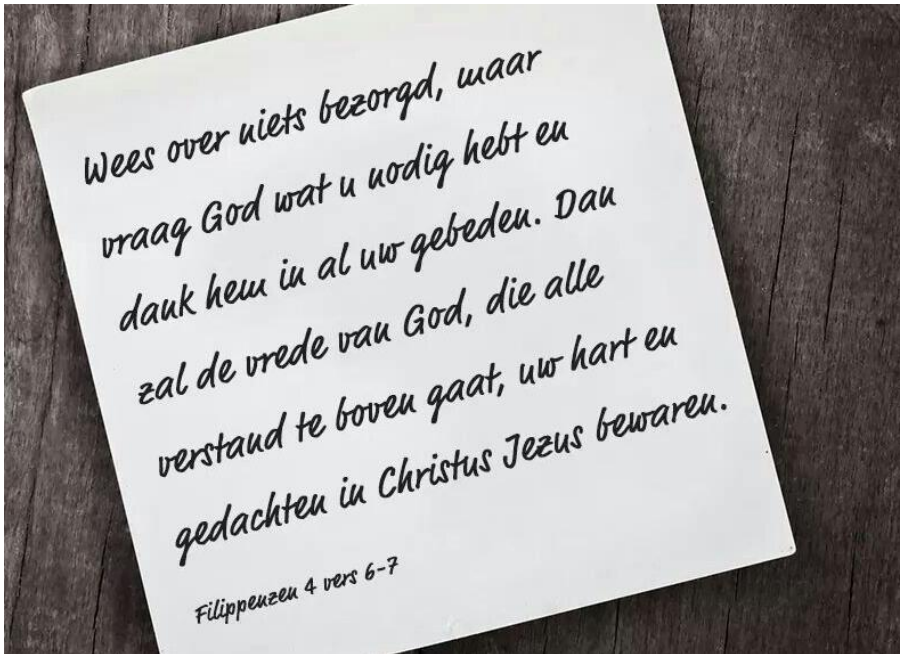 Wees over niets bezorgd, maar
vraag God wat u nodig hebt en
dank hem in al uw gebeden. Dan
zal de vrede van God, die alle
verstand te boven gaat, uw hart en
gedachten in Christus Jezus bewaren.
Filippenzen 4 vers 6-7